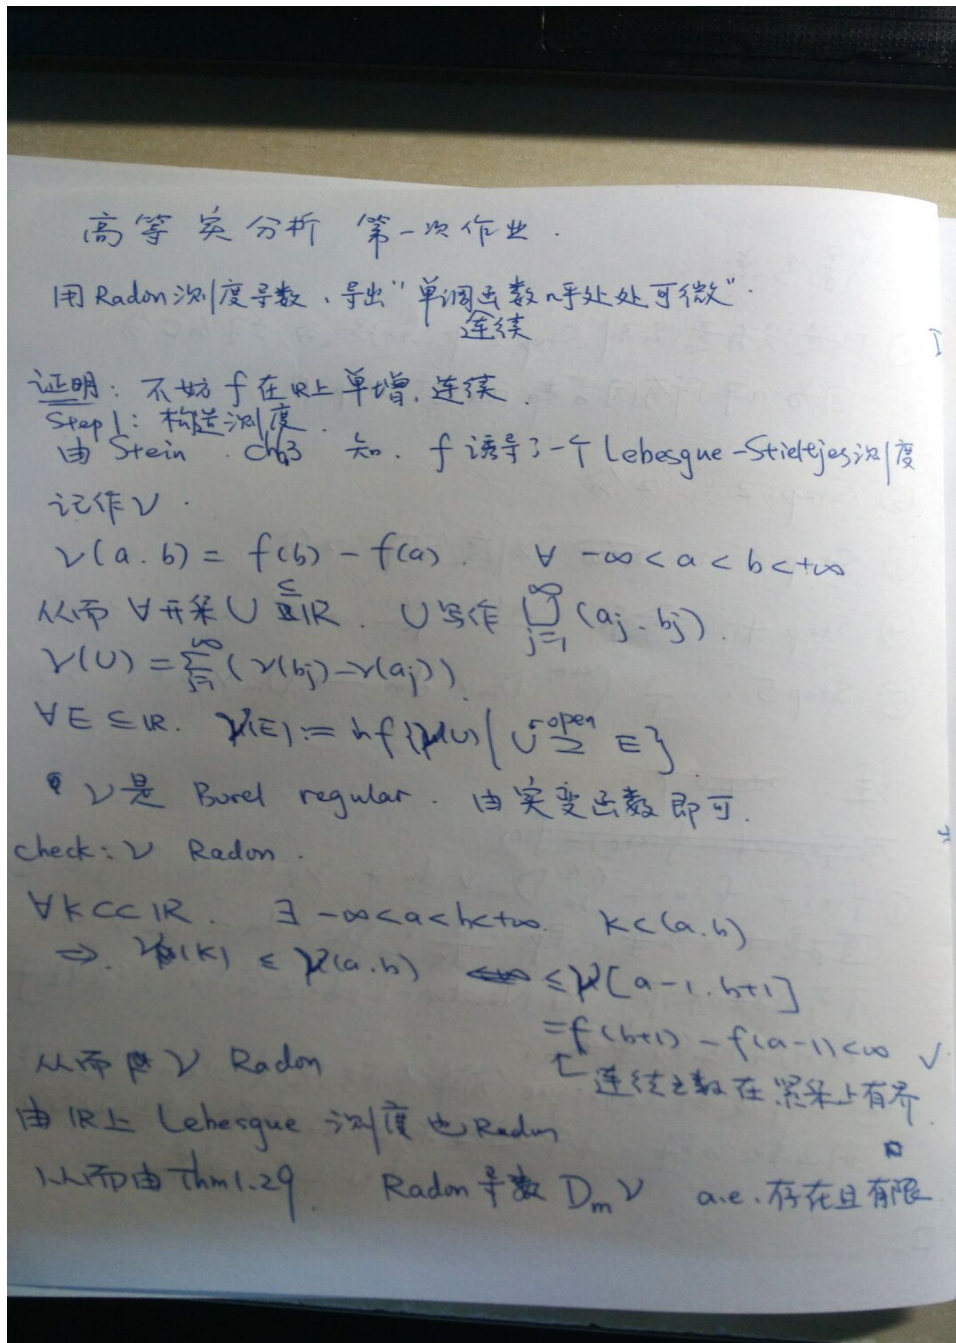 高等实分析 第一次作业.
用Radon测度导数,导出"单调函数几乎处处可微".
连续
证明: 不妨 f 在 ℝ 上单增,连续.
Step 1: 构造测度.
由 Stein. ch3 知. f 诱导了一个 Lebesgue-Stieltjes测度
记作 ν.
ν(a.b) = f(b) - f(a). ∀ -∞<a<b<+∞
从而 ∀开集 U ⊆ ℝ. U写作 ⋃_{j=1}^{∞} (aj, bj).
ν(U) = ∑_{j=1}^{∞} (ν(bj) - ν(aj))
∀E ⊆ ℝ. ν(E) := inf{ν(U) | U open ⊇ E}
ν是 Borel regular. 由实变函数即可.
check: ν Radon.
∀K⊂⊂ℝ. ∃ -∞<a<b<+∞. K⊂(a.b)
⇒ ν(K) ≤ ν(a.b) ≤ ν[a-1.b+1]
= f(b+1) - f(a-1) < ∞ ✓
从而 ν Radon
连续函数在紧集上有界.
由 ℝ上 Lebesgue 测度也Radon
从而由Thm1.29. Radon导数 D_m ν a.e.存在且有限